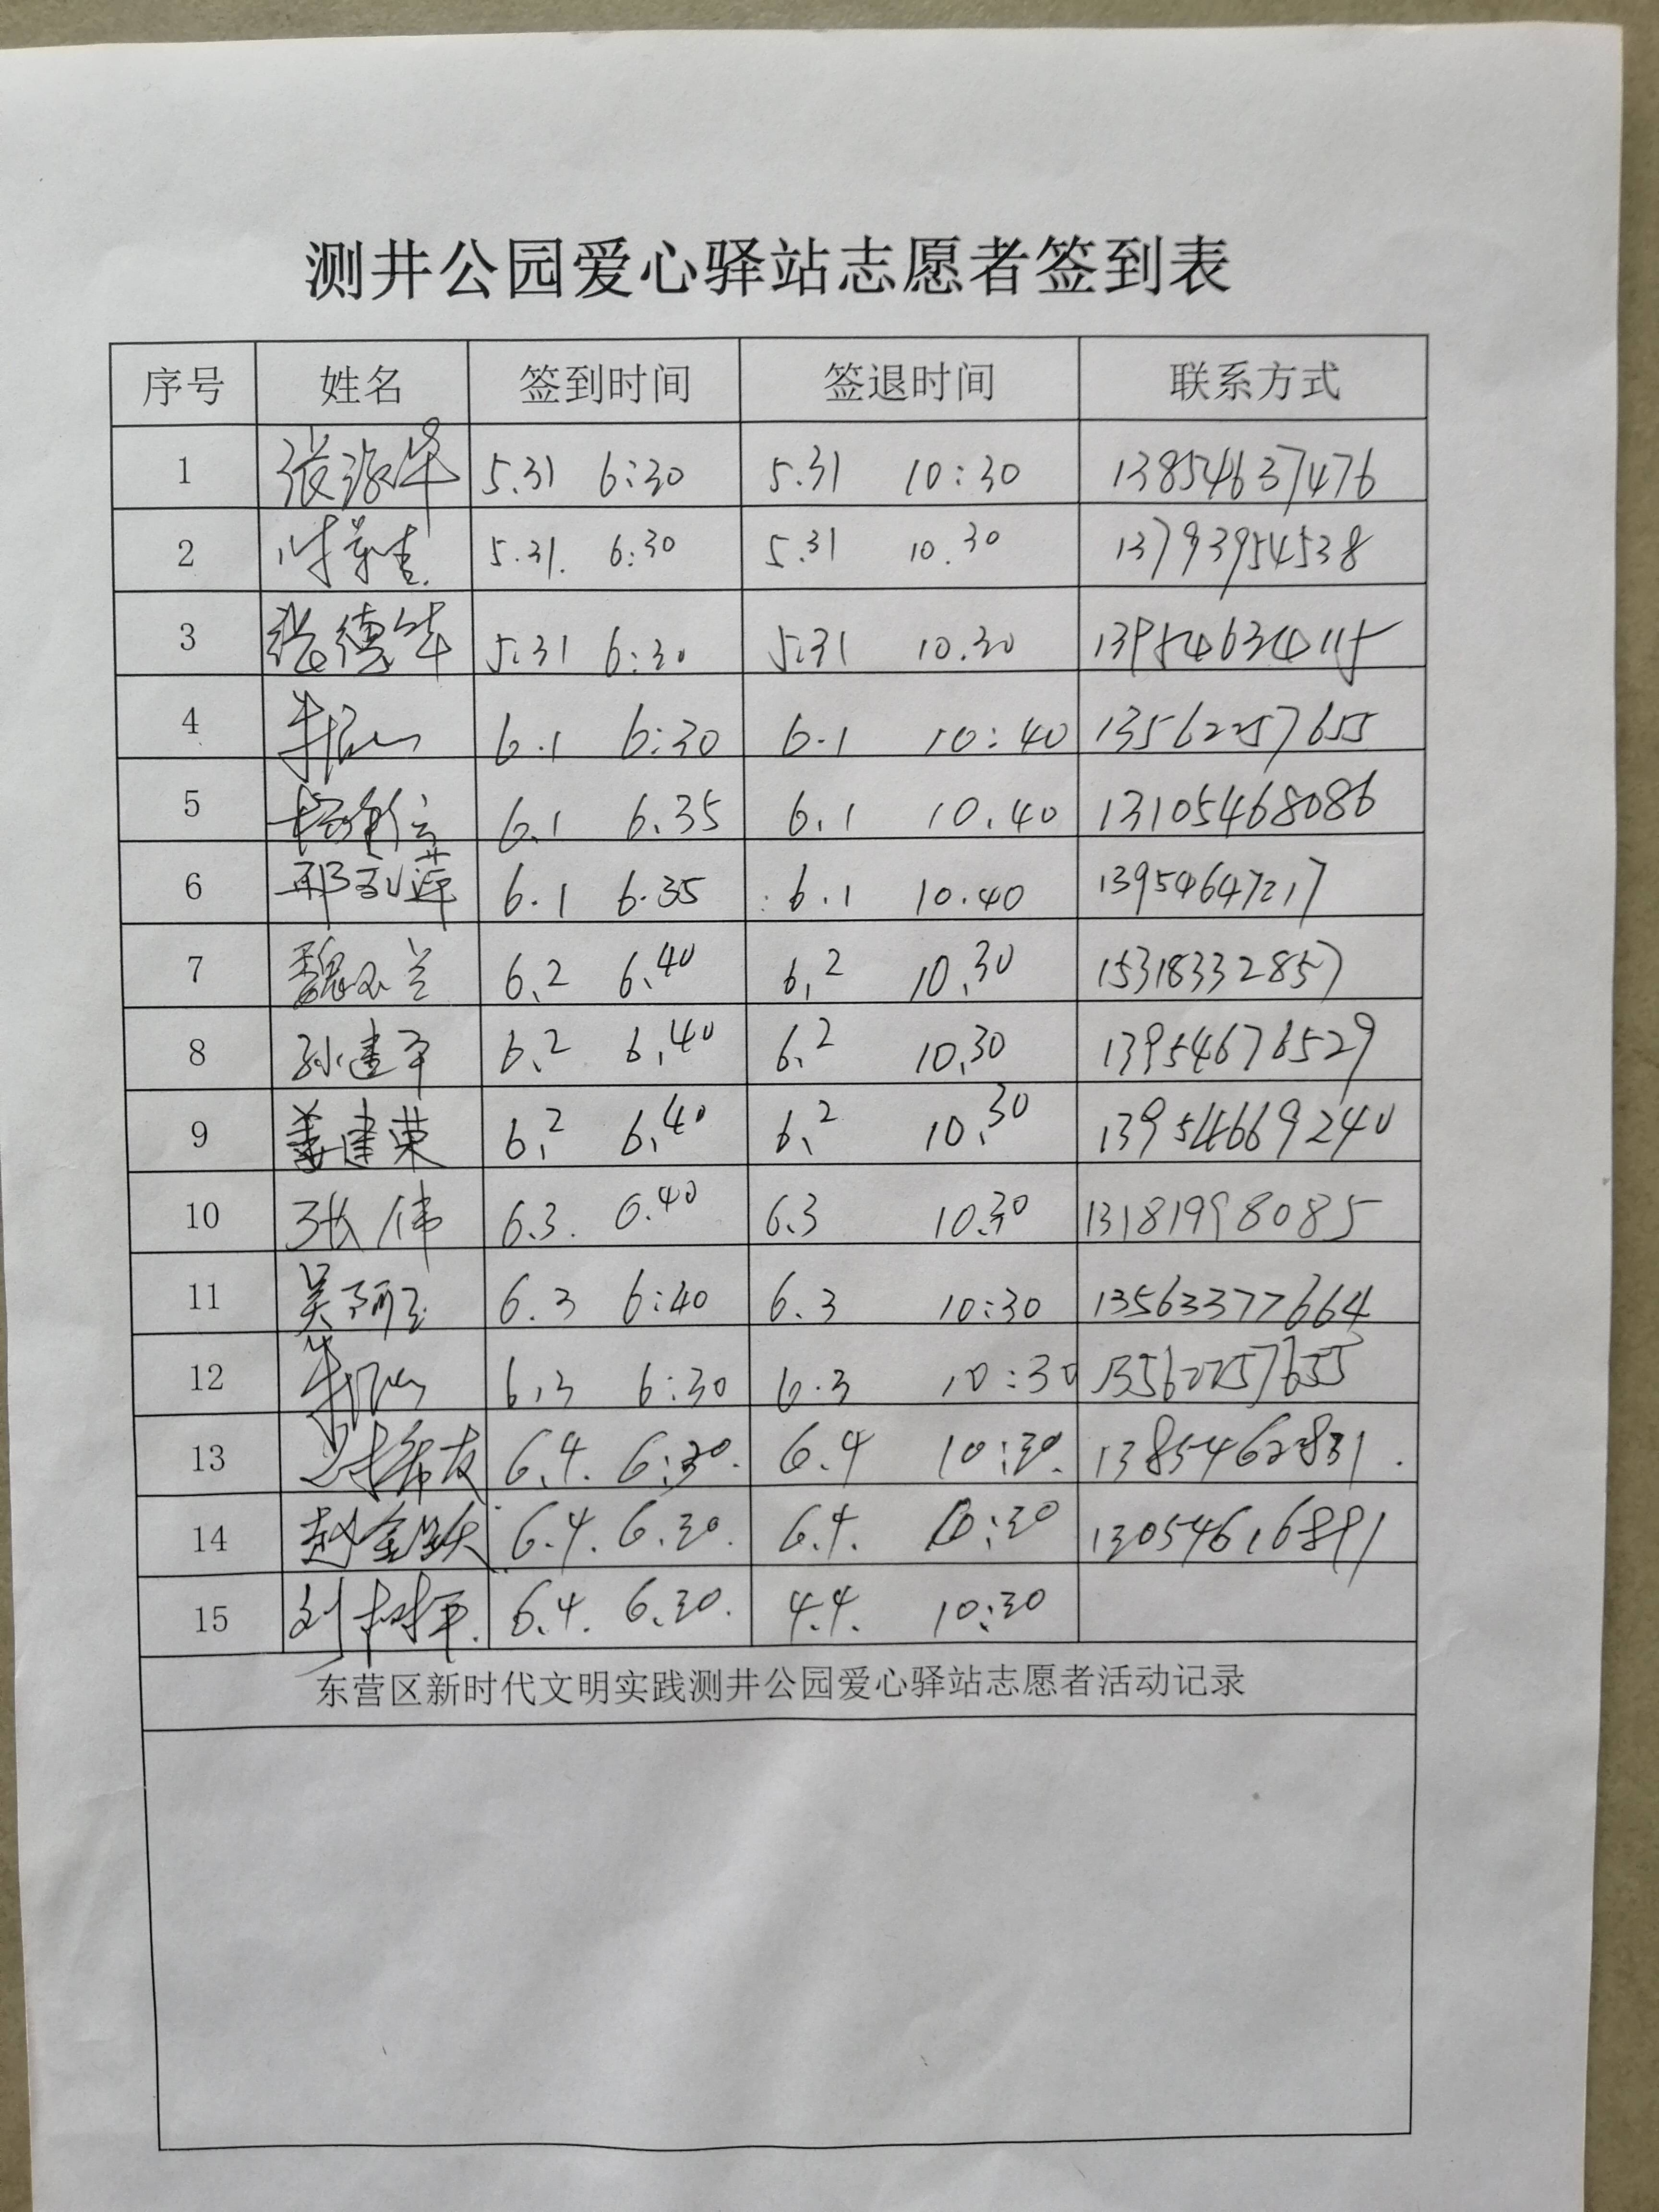 测井公园爱心驿站志愿者签到表
序号 姓名 签到时间 签退时间 联系方式
1 张源华 5.31 6:30 5.31 10:30 13854637476
2 5.31. 6:30 5.31 10.30 13793954538
3 张德华 5.31 6:30 5.31 10.30 13954634115
4 6.1 6:30 6.1 10:40 13562257655
5 6.1 6.35 6.1 10.40 13105468086
6 6.1 6.35 6.1 10.40 13954647217
7 魏玉兰 6.2 6.40 6.2 10.30 15318332857
8 孙建平 6.2 6.40 6.2 10.30 13954676529
9 姜建荣 6.2 6.40 6.2 10.30 13954669240
10 张伟 6.3. 6.40 6.3 10.30 13181998085
11 6.3 6:40 6.3 10:30 13563377664
12 6.3 6:30 6.3 10:30 13562257655
13 6.4. 6:30. 6.4 10:30. 1385462831.
14 赵金跃 6.4. 6.30. 6.4. 10:30 13054616891
15 刘树平. 6.4. 6.30. 4.4. 10:30
东营区新时代文明实践测井公园爱心驿站志愿者活动记录